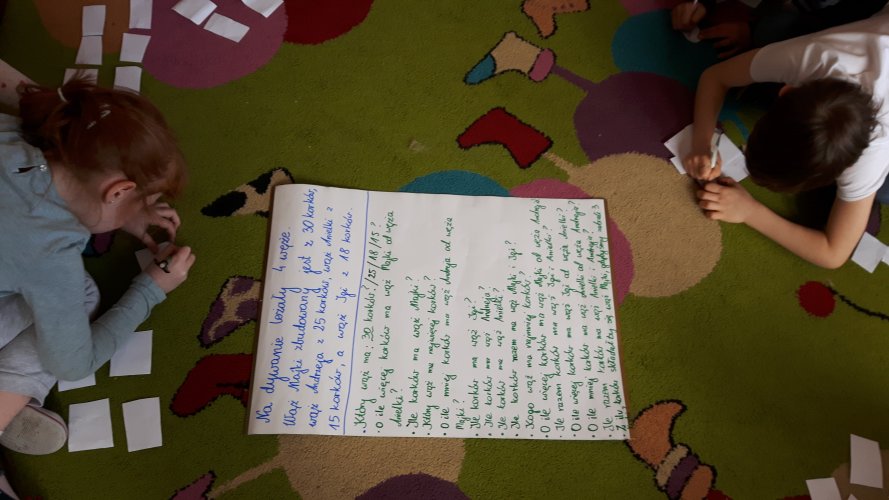 Na dywanie leżały 4 węże.
Wąż Majki zbudowany jest z 30 korków,
wąż Andrzeja z 25 korków, wąż Anielki z
15 korków, a wąż Igi z 18 korków.
• Który wąż ma: 30 korków? /25 /18 /15?
• O ile więcej korków ma wąż Majki od węża
Anielki?
• Ile korków ma wąż Majki?
• Który wąż ma najwięcej korków?
• O ile mniej korków ma wąż Andrzeja od węża
Majki?
• Ile korków ma wąż Igi?
• Ile korków ma wąż Andrzeja?
• Ile korków ma wąż Anielki?
• Ile korków razem ma wąż Majki i Igi?
• Kogo wąż ma najmniej korków?
• O ile więcej korków ma wąż Majki od węża Andrzeja?
• Ile razem korków ma wąż Igi i Anielki?
• O ile więcej korków ma wąż Igi od węża Anielki?
• O ile mniej korków ma wąż Anielki od węża Andrzeja?
• Ile razem korków ma wąż Anielki i Andrzeja?
Z ilu korków składał by się wąż Majki, gdyby mu 3